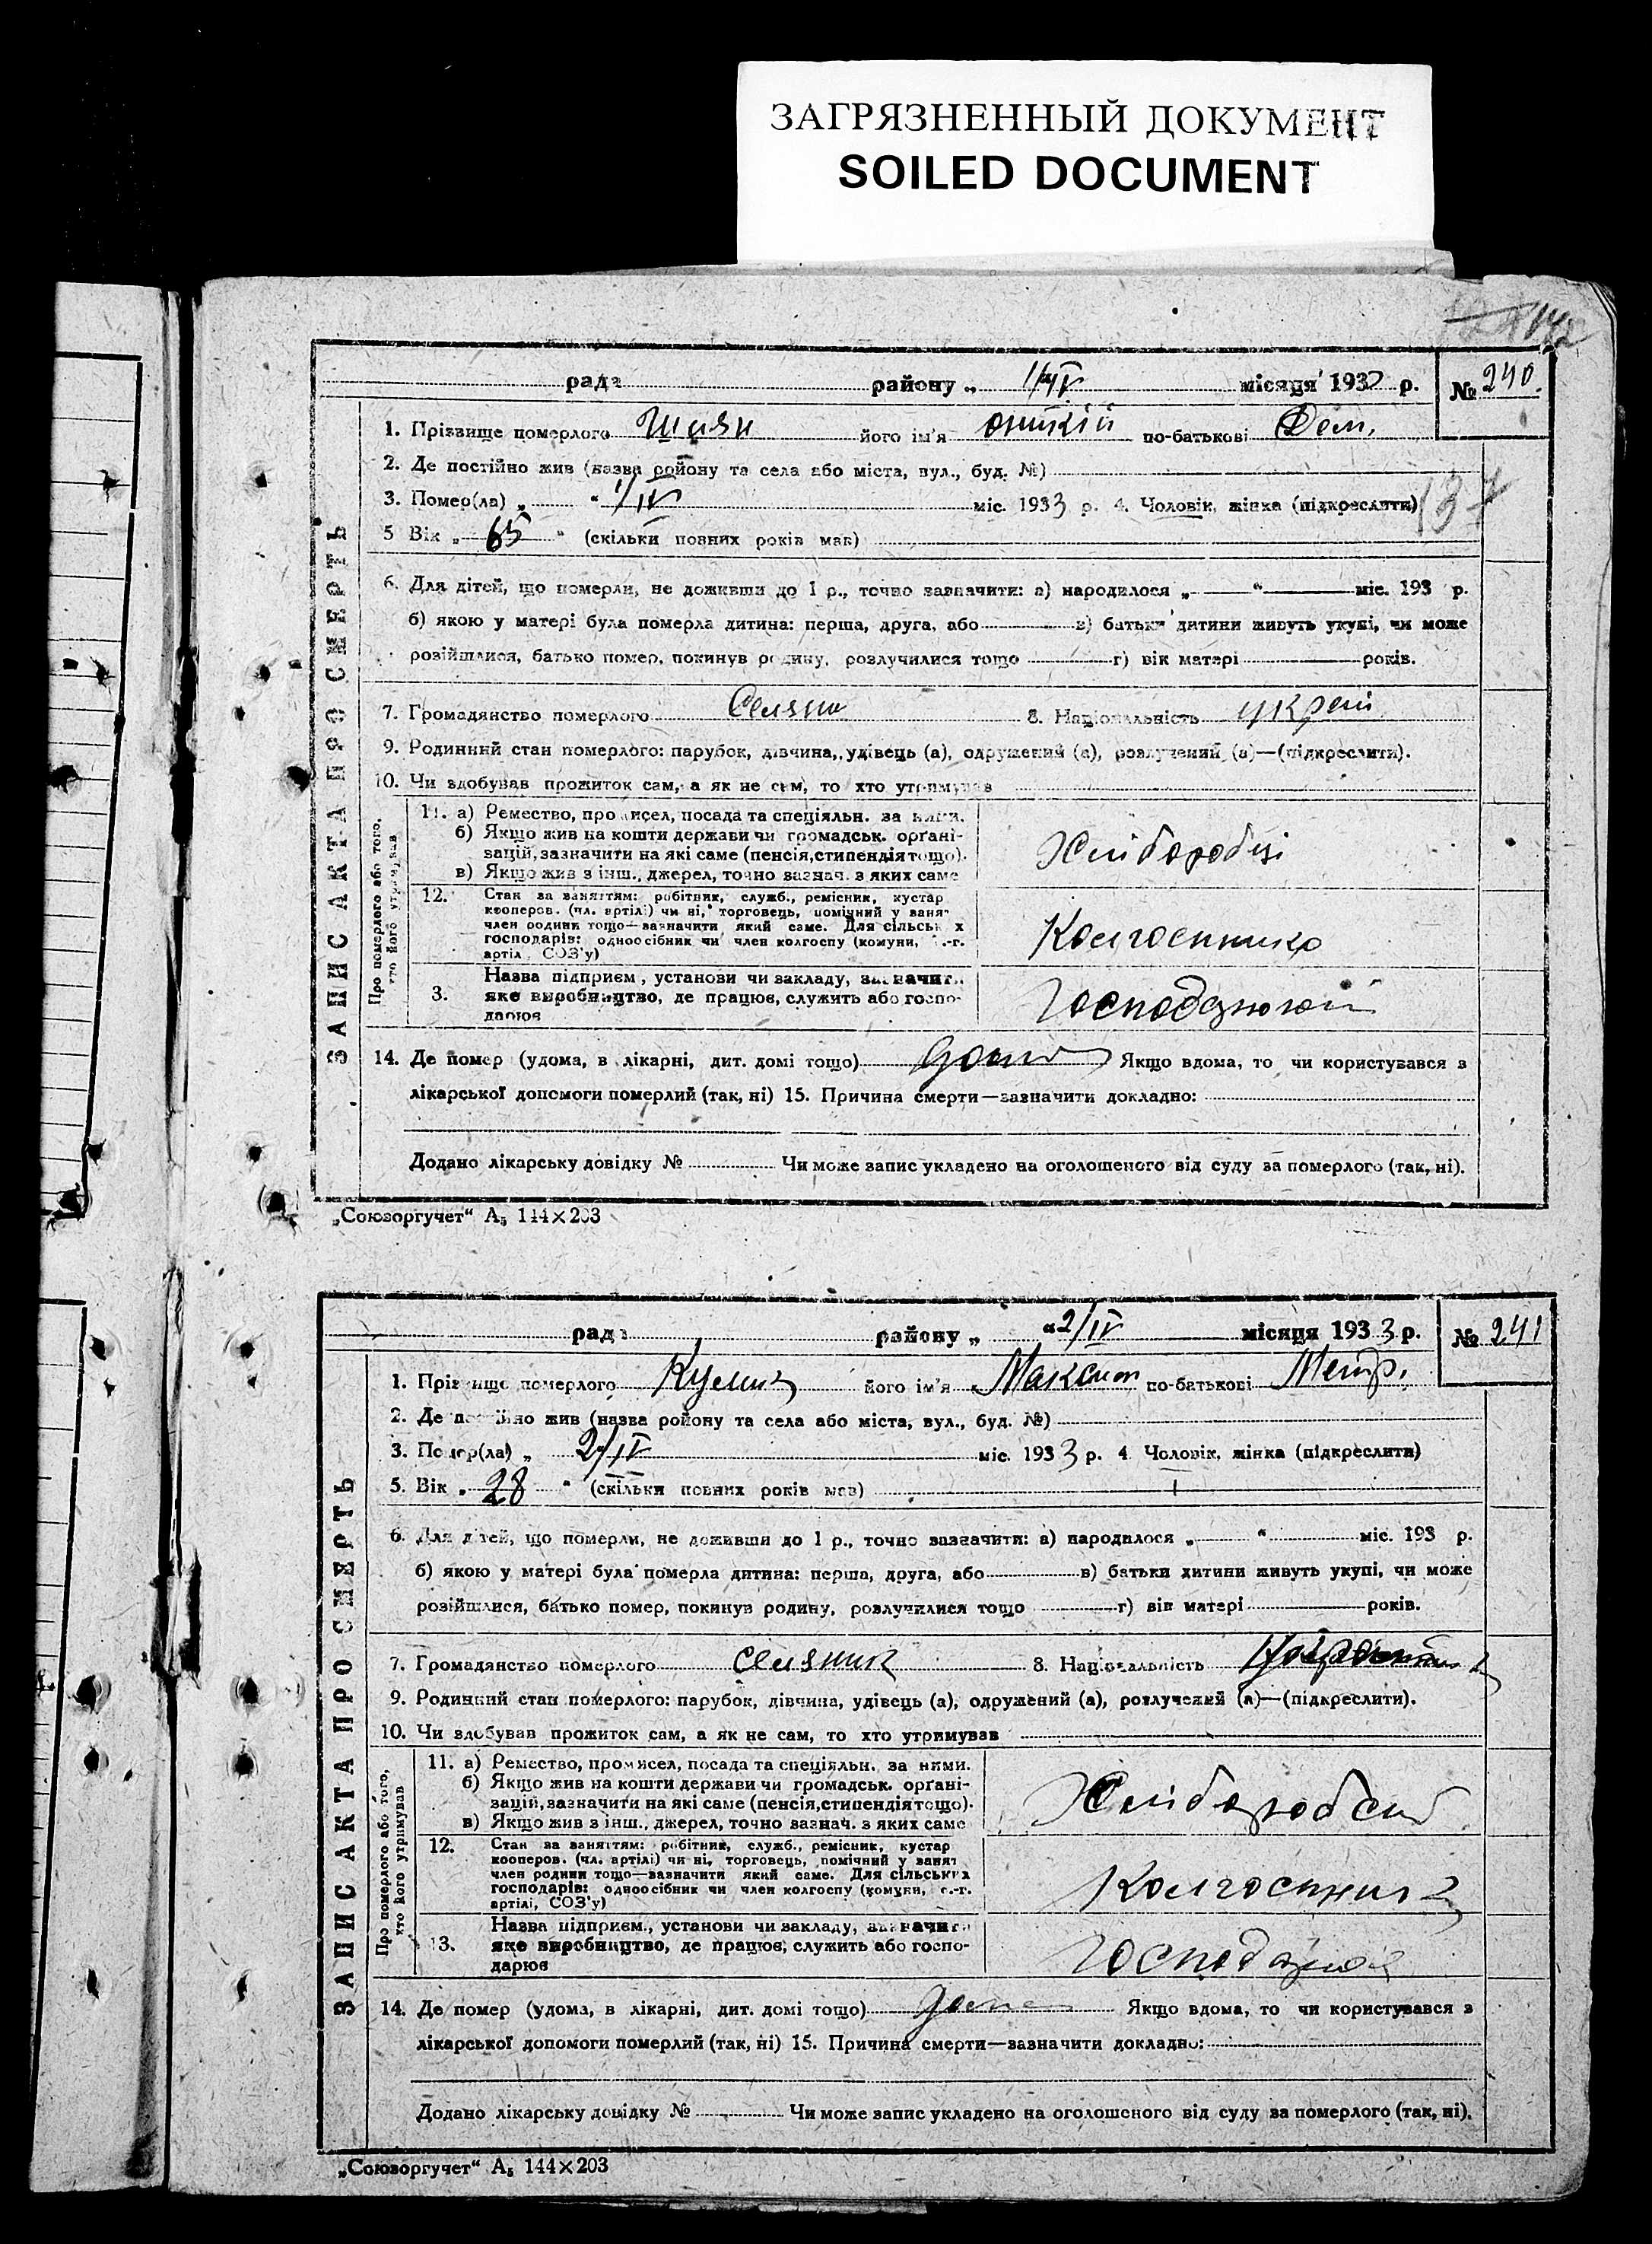 ЗАГРЯЗНЕННЫЙ ДОКУМЕНТ
SOILED DOCUMENT
рада району „ 1/IV місяця 1933 р. № 240.
ЗАПИС АКТА ПРО СМЕРТЬ
1. Прізвище померлого Шиян його ім'я по-батькові Дем.
2. Де постійно жив (назва району та села або міста, вул., буд. №)
3. Помер(ла) „ “ 1/IV міс. 1933 р. 4. Чоловік, жінка (підкреслити)
5 Вік „ 65 “ (скільки повних років мав)
6. Для дітей, що померли, не доживши до 1 р., точно зазначити: а) народилося „ “ міс. 193 р.
б) якою у матері була померла дитина: перша, друга, або в) батьки дитини живуть укупі, чи може
розійшлися, батько помер, покинув родину, розлучилися тощо г) вік матері років.
7. Громадянство померлого Селян 8. Національність
9. Родинний стан померлого: парубок, дівчина, удівець (а), одружений (а), розлучений (а)—(підкреслити).
10. Чи здобував прожиток сам, а як не сам, то хто утримував
Про померлого або того, хто його утримував
11. а) Ремество, промисел, посада та спеціяльн. за ними.
б) Якщо жив на кошти держави чи громадськ. орґані-
зацій, зазначити на які саме (пенсія, стипендія тощо).
в) Якщо жив з інш., джерел, точно зазнач. з яких саме
12. Стан за заняттям: робітник, служб., ремісник, кустар
кооперов. (чл. артілі) чи ні, торговець, помічний у занят
член родини тощо—зазначити який саме. Для сільських
господарів: одноосібник чи член колгоспу (комуни, с.-г.
артілі, СОЗ'у)
Колгоспник
3. Назва підприєм., установи чи закладу, зазначити
яке виробництво, де працює, служить або госпо-
дарює
14. Де помер (удома, в лікарні, дит. домі тощо) дома Якщо вдома, то чи користувався з
лікарської допомоги померлий (так, ні) 15. Причина смерти—зазначити докладно:
Додано лікарську довідку № Чи може запис укладено на оголошеного від суду за померлого (так, ні).
„Союзоргучет“ А5 144×203
рада району „ “2/IV місяця 1933 р. № 241
ЗАПИС АКТА ПРО СМЕРТЬ
1. Прізвище померлого Кулик його ім'я Максим по-батькові
2. Де постійно жив (назва району та села або міста, вул., буд. №)
3. Помер(ла) „ 2/IV міс. 1933 р. 4 Чоловік, жінка (підкреслити)
5. Вік „ 28 “ (скільки повних років мав)
6. Для дітей, що померли, не доживши до 1 р., точно зазначити: а) народилося „ “ міс. 193 р.
б) якою у матері була померла дитина: перша, друга, або в) батьки дитини живуть укупі, чи може
розійшлися, батько помер, покинув родину, розлучилися тощо г) вік матері років.
7. Громадянство померлого селяник 8. Національність
9. Родинний стан померлого: парубок, дівчина, удівець (а), одружений (а), розлучений (а)—(підкреслити).
10. Чи здобував прожиток сам, а як не сам, то хто утримував
Про померлого або того, хто його утримував
11. а) Ремество, промисел, посада та спеціяльн. за ними.
б) Якщо жив на кошти держави чи громадськ. орґані-
зацій, зазначити на які саме (пенсія, стипендія тощо).
в) Якщо жив з інш., джерел, точно зазнач. з яких саме
12. Стан за заняттям: робітник, служб., ремісник, кустар
кооперов. (чл. артілі) чи ні, торговець, помічний у занят
член родини тощо—зазначити який саме. Для сільських
господарів: одноосібник чи член колгоспу (комуни, с.-г.
артілі, СОЗ'у)
Колгоспник
13. Назва підприєм., установи чи закладу, зазначити
яке виробництво, де працює, служить або госпо-
дарює
14. Де помер (удома, в лікарні, дит. домі тощо) дома Якщо вдома, то чи користувався з
лікарської допомоги померлий (так, ні) 15. Причина смерти—зазначити докладно:
Додано лікарську довідку № Чи може запис укладено на оголошеного від суду за померлого (так, ні).
„Союзоргучет“ А5 144×203